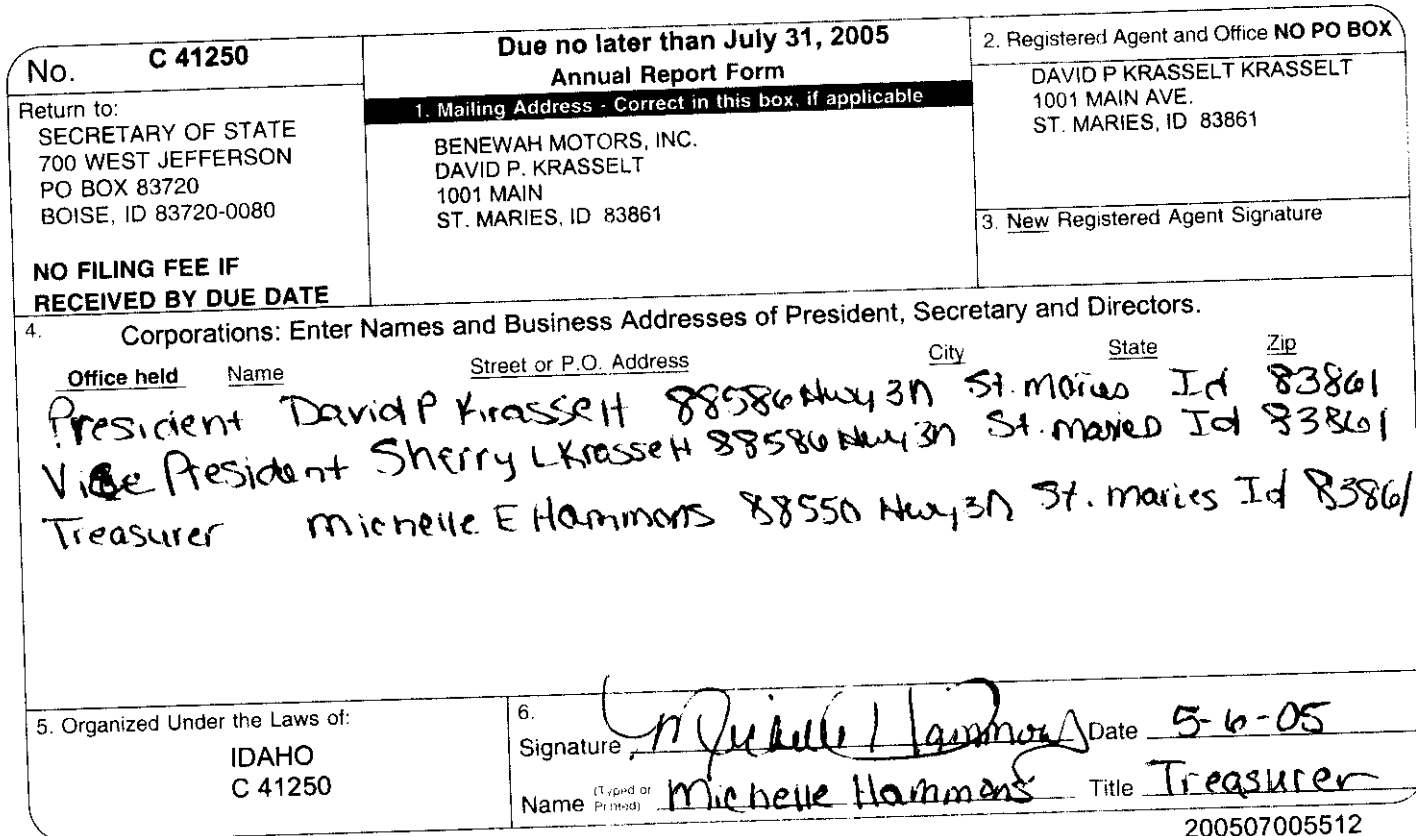 No. C 41250
Return to:
SECRETARY OF STATE
700 WEST JEFFERSON
PO BOX 83720
BOISE, ID 83720-0080
NO FILING FEE IF
RECEIVED BY DUE DATE
Due no later than July 31, 2005
Annual Report Form
1. Mailing Address - Correct in this box, if applicable
BENEWAH MOTORS, INC.
DAVID P. KRASSELT
1001 MAIN
ST. MARIES, ID 83861
2. Registered Agent and Office NO PO BOX
DAVID P KRASSELT KRASSELT
1001 MAIN AVE.
ST. MARIES, ID 83861
3. New Registered Agent Signature
4. Corporations: Enter Names and Business Addresses of President, Secretary and Directors.
Office held Name Street or P.O. Address City State Zip
President David P Krasselt 88586 Hwy 3N St. Maries Id 83861
Vice President Sherry L Krasselt 88586 Hwy 3N St. Maries Id 83861
Treasurer Michelle E Hammons 88550 Hwy 3N St. Maries Id 83861
5. Organized Under the Laws of:
IDAHO
C 41250
6.
Signature Michelle Hammons Date 5-6-05
Name (Typed or Printed) Michelle Hammons Title Treasurer
200507005512